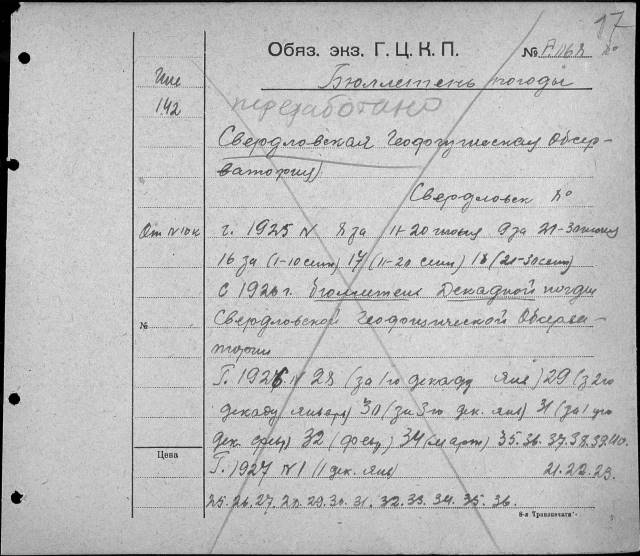 17
Обяз. экз. Г. Ц. К. П. №
Бюллетень погоды
142
переработано
Свердловская Геофизическая Обсер-
ватория
Свердловск 8°
От г. 1925 № 8 за 11-20 9 за 21-30
16 за (1-10 сент) 17 (11-20 сент) 18 (21-30 сент)
С 1926 г. Бюллетень Декадной погоды
№ Свердловской Геофизической Обсерва-
тории
Г. 1926 № 28 (за 1го декаду янв) 29 (за 2го
декаду января) 30 (за 3го дек. янв) 31 (за 1
дек. февр) 32 (февр) 34 (март) 35. 36. 37. 38. 39. 40.
Цена
Г. 1927 № 1 (1 дек. янв) 21. 22. 23.
25. 26. 27. 28. 29. 30. 31. 32. 33. 34. 35. 36.
8-я Транспечати